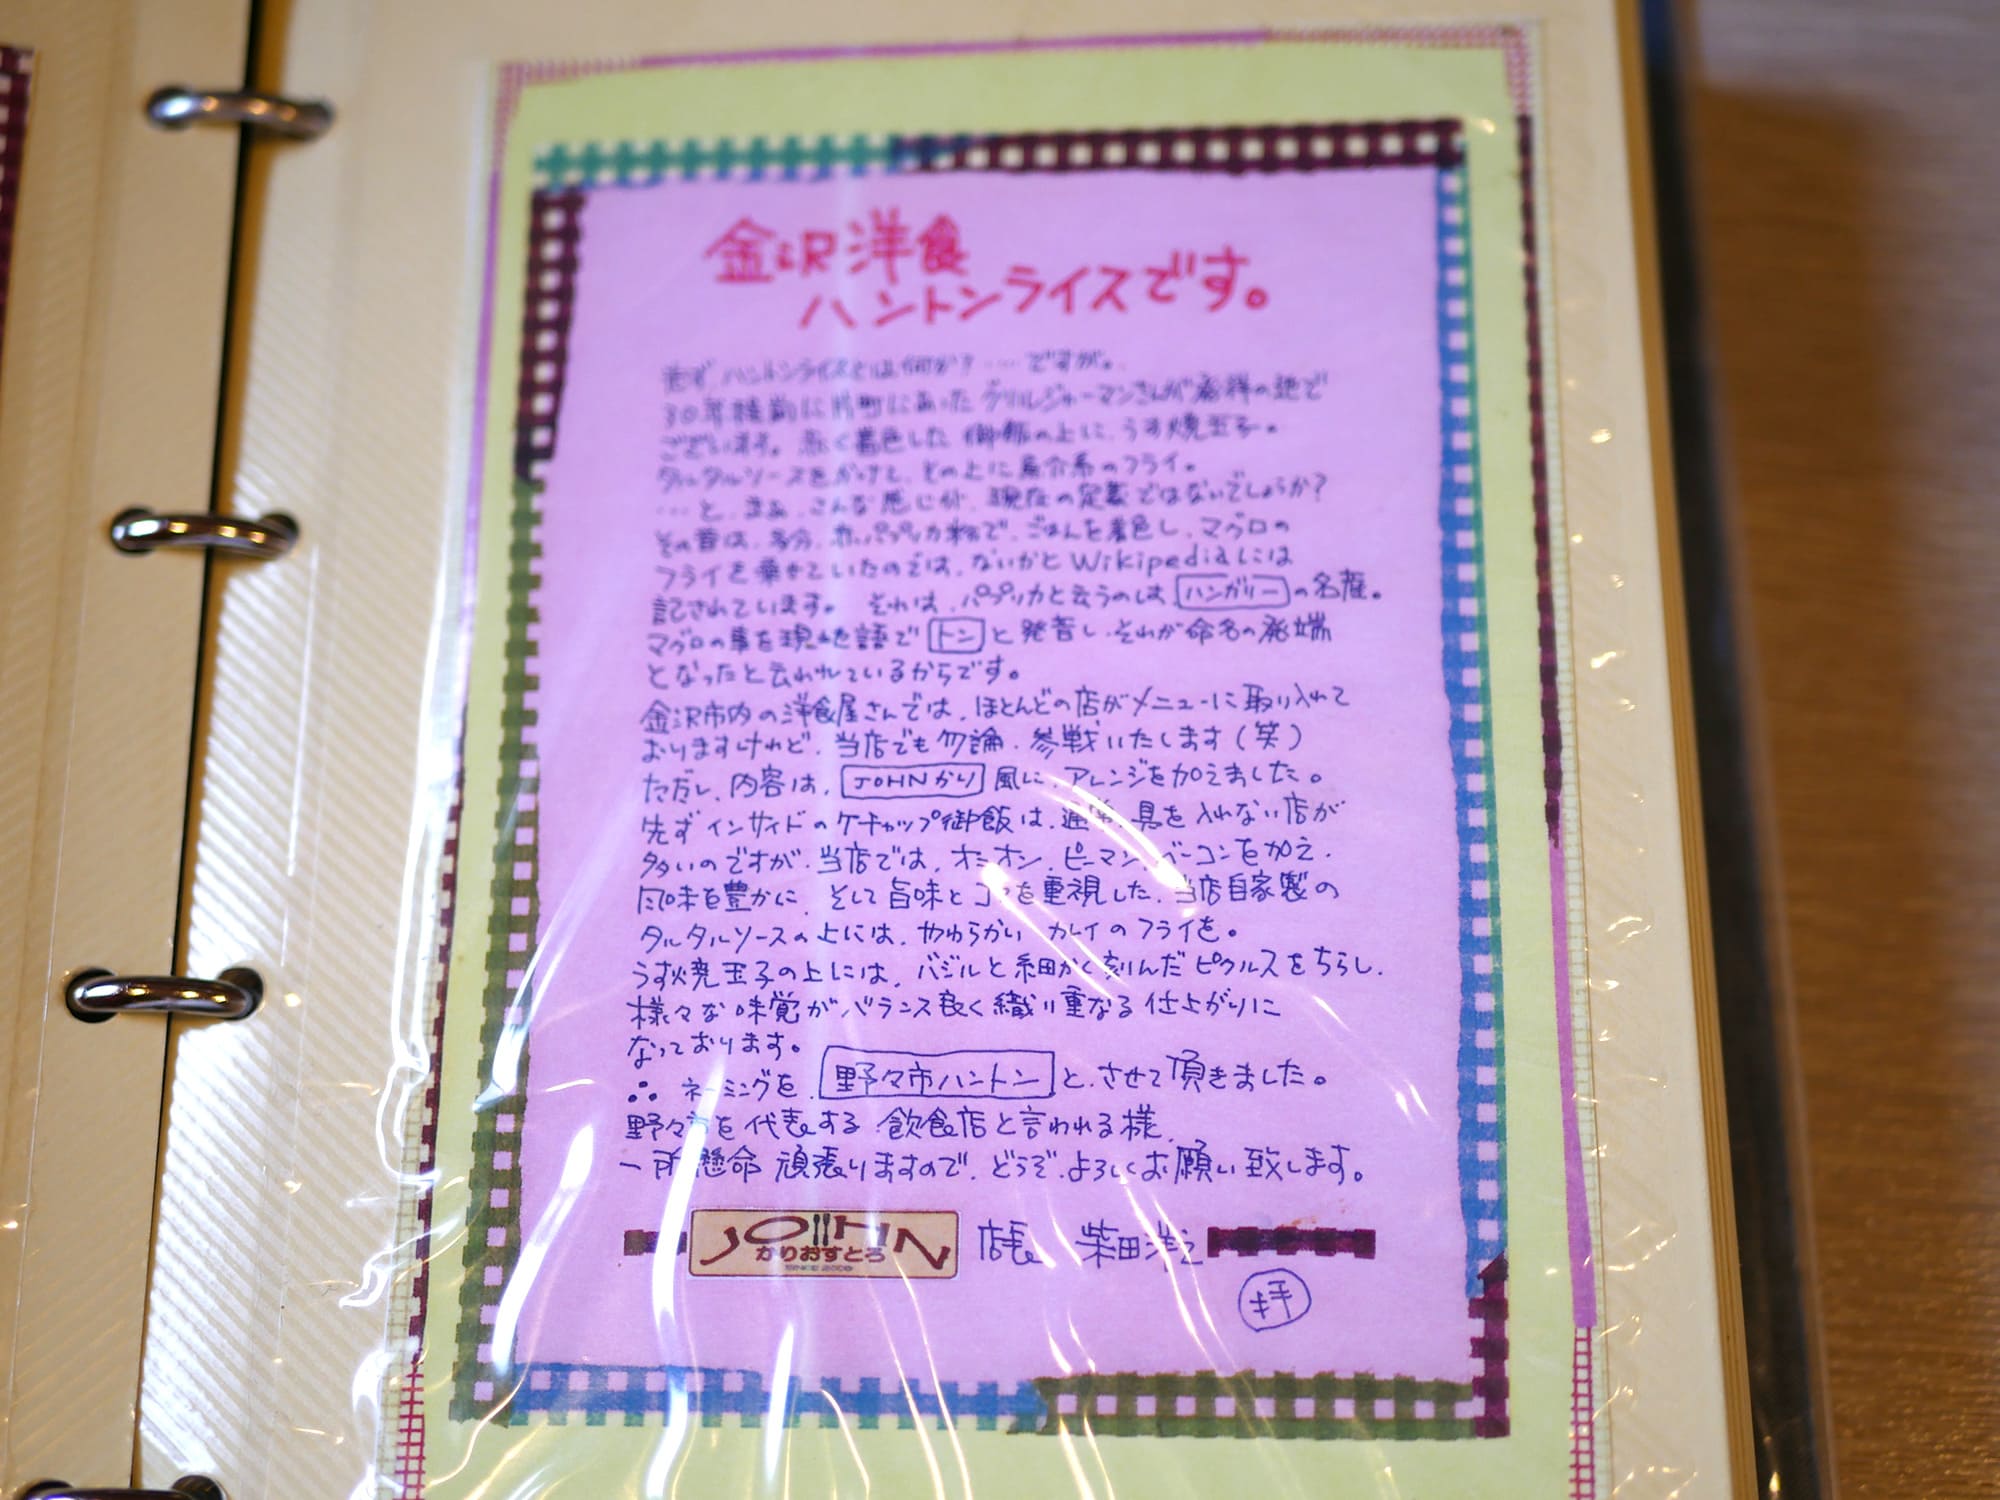 金沢洋食
ハントンライスです。
先ず、ハントンライスとは何か?……ですが。
30年程前に片町にあったグリルジャーマンさんが発祥の地で
ございます。赤く着色した御飯の上に、うす焼玉子。
タルタルソースをかけて、その上に魚介系のフライ。
…と、まぁ、こんな感じが、現在の定義ではないでしょうか?
その昔は、多分、赤いパプリカ粉で、ごはんを着色し、マグロの
フライを乗せていたのでは、ないかとWikipediaには
記されています。それは、パプリカと云うのは、ハンガリーの名産。
マグロの事を現地語でトンと発音し、それが命名の発端
となったと云われているからです。
金沢市内の洋食屋さんでは、ほとんどの店がメニューに取り入れて
おりますけれど、当店でも勿論、参戦いたします(笑)
ただし、内容は、JOHNかり風に、アレンジを加えました。
先ずインサイドのケチャップ御飯は、通常、具を入れない店が
多いのですが、当店では、オニオン、ピーマン、ベーコンを加え、
風味を豊かに、そして旨味とコクを重視した、当店自家製の
タルタルソースの上には、やわらかいカレイのフライを。
うす焼玉子の上には、バジルと細かく刻んだピクルスをちらし、
様々な味覚がバランス良く織り重なる仕上がりに
なっております。
∴ネーミングを、野々市ハントンと、させて頂きました。
野々市を代表する飲食店と言われる様、
一所懸命頑張りますので、どうぞ、よろしくお願い致します。
JOHN
かりおすとろ
店長 柴田洋之
拝